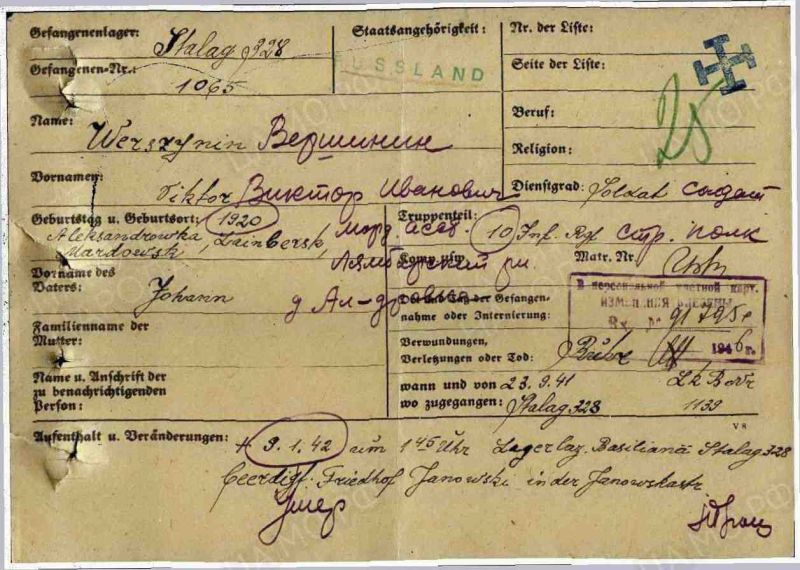 Gefangenenlager: Stalag 328 Staatsangehörigkeit: Nr. der Liste:
RUSSLAND
Gefangenen-Nr.: 1065 Seite der Liste:
25
Beruf:
Name: Werszynin Вершинин
Religion:
Vornamen: Viktor Виктор Иванович Dienstgrad: Soldat солдат
Geburtstag u. Geburtsort: 1920 Truppenteil:
Aleksandrowka 10 Inf. Rgf стр. полк
Mardowsk, Лямбирский
Komp. usw. Matr. Nr.
Vorname des
Vaters: Johann д Ал-дровка
Gefangen-
nahme oder Internierung:
В персональной учетной карт.
ИЗМЕНЕНИЯ ВНЕСЕНЫ
1946 г.
Familienname der
Mutter:
Verwundungen,
Verletzungen oder Tod:
Name u. Anschrift der
zu benachrichtigenden
Person:
wann und von 23.9.41
wo zugegangen: Stalag 328 1139
V8
Aufenthalt u. Veränderungen: + 9.1.42 um 1 45 Uhr Lagerlaz. Basilianä Stalag 328
Beerdigt: Friedhof Janowski in der Janowskastr
Умер